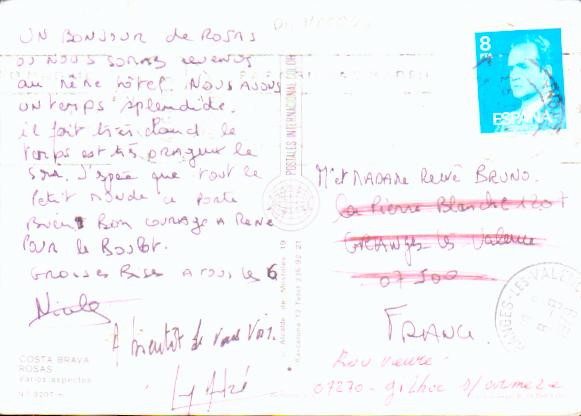 UN BONJOUR de ROSAS
OU NOUS SOMMES revenus
au même hôtel. NOUS AVONS
UN temps splendide.
il fait très chaud le
temps est très ORAGEUX le
SOIR. J'espère que tout le
Petit monde se porte
Bien BON COURAGE A RENÉ
POUR le Boulot.
GROSSES Bises A tous les 6
Nicole
A bientôt de vous voir.
COSTA BRAVA
ROSAS
Varios aspectos
N.º 3207
POSTALES INTERNACIONAL COLOR
Alcalde de Móstoles, 19
Barcelona
8
PTA
ESPAÑA
Mr et MADAME René BRUNO.
La Pierre Blanche 1207
GRANGES les Valence
07500
FRANCE
GRANGES-LES-VALENCE
07270 - gilhoc s/ormeze